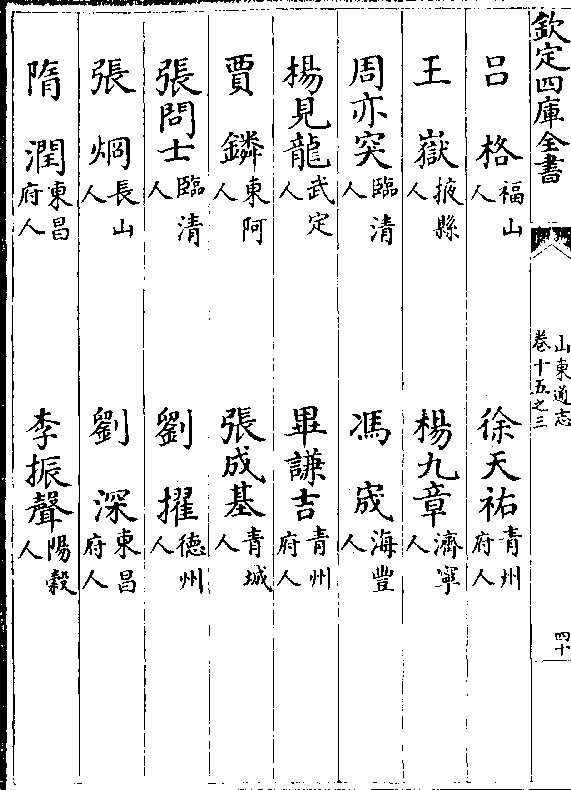 欽定四庫全書
山東通志
卷十五之三
四十
呂格福山人 徐天祐青州府人
王嶽掖縣人 楊九章濟寧人
周亦突臨清人 馮宬海豐人
楊見龍武定人 畢謙吉青州府人
賈鏻東阿人 張成基青城人
張問士臨清人 劉擢德州人
張烱長山人 劉深東昌府人
隋潤東昌府人 李振聲陽穀人